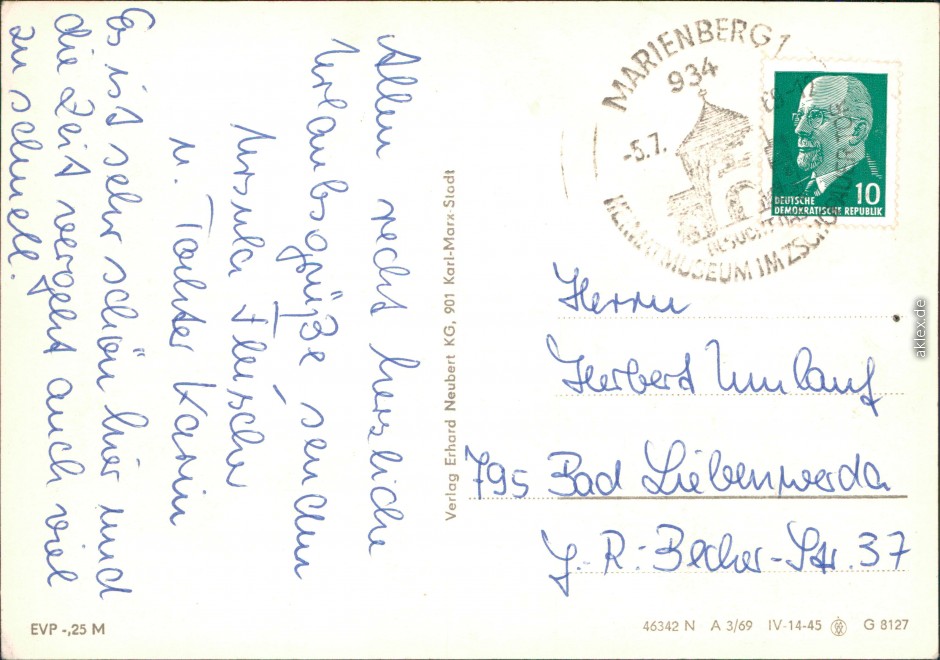 Allen recht herzliche
Urlaubsgrüße senden
Ursula Fleischer
u. Tochter Karin
Es ist sehr schön hier und
die Zeit vergeht auch viel
zu schnell.
Verlag Erhard Neubert KG, 901 Karl-Marx-Stadt
MARIENBERG 1
934
-5.7.
BESUCHT DAS
HEIMATMUSEUM IM ZSCHOPAUER TOR
DEUTSCHE
DEMOKRATISCHE REPUBLIK
10
Herrn
Herbert Umlauf
795 Bad Liebenwerda
J.-R.-Becher-Str. 37
EVP -,25 M
46342 N A 3/69 IV-14-45 G 8127
akpool.de